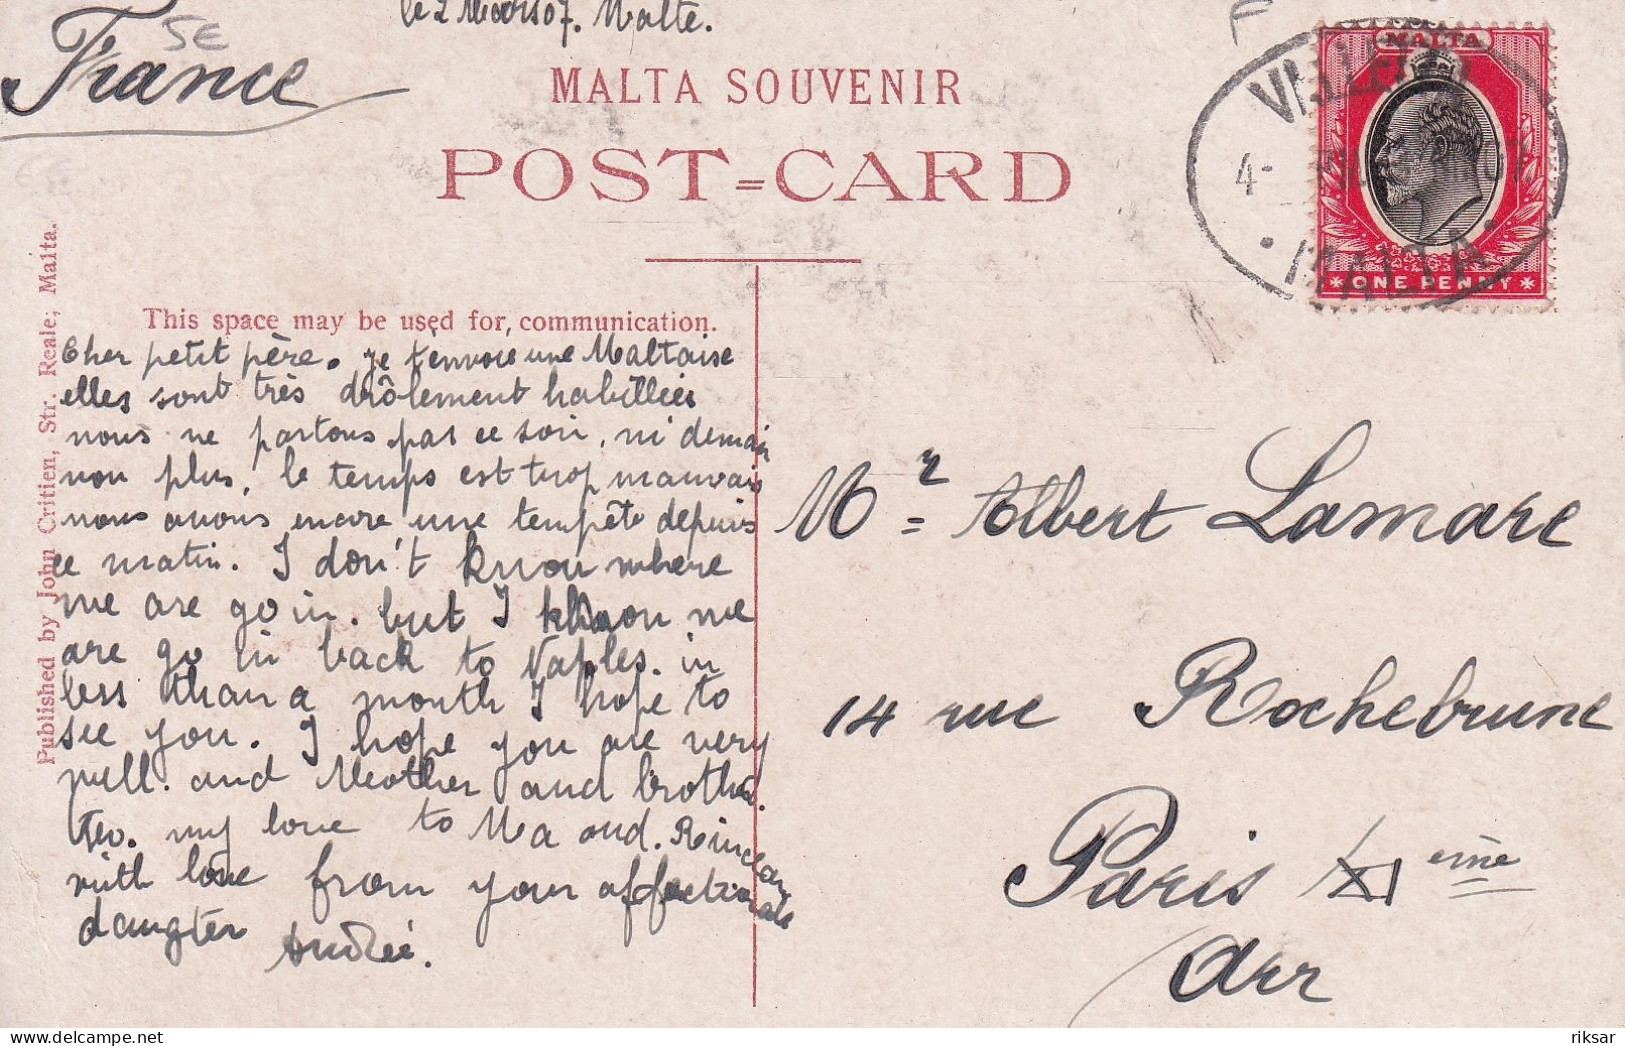 le 2 Mars 07. Malte.
France
5€
MALTA SOUVENIR
POST=CARD
VALLETTA
4-
MALTA
MALTA
ONE PENNY
Published by John Critien, Str. Reale; Malta.
This space may be used for communication.
Cher petit père. je t'envoie une Maltaise
elles sont très drôlement habillées
nous ne partons pas ce soir, ni demain
non plus, le temps est trop mauvais
nous avons encore une tempête depuis
ce matin. I don't know where
we are go in. but I know we
are go in back to Naples. in
less than a month I hope to
see you. I hope you are very
well. and Mother and brother
two. my love to Ma and.
with love from your affectionate
daugter Andrée.
Mr = Albert Lamare
14 rue Rochebrune
Paris XI eme
Arr
riksar